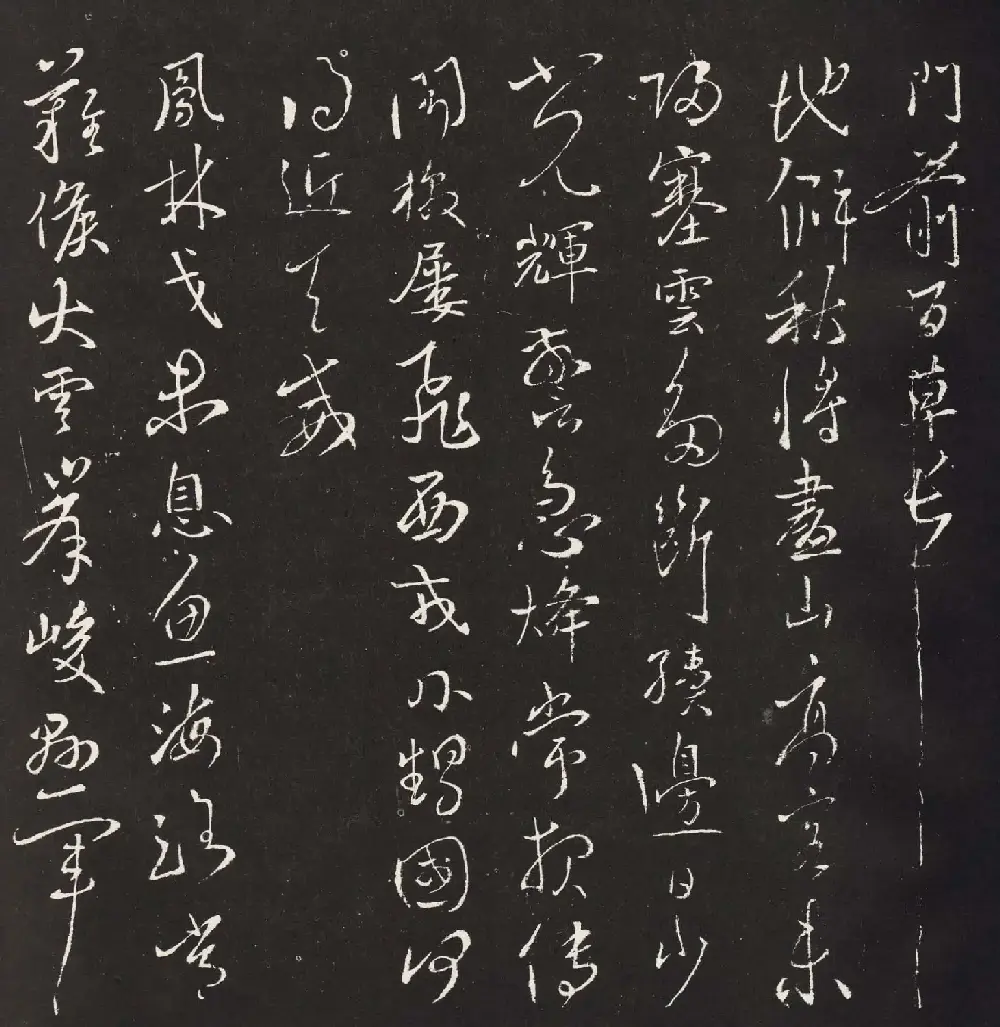 門前百草長
地僻秋將盡山高客未
歸塞雲多斷續邊日少
光輝警急烽常報傳
聞檄屢飛西戎外甥國何
得近天威
鳳林戈未息魚海路常
難候火雲峯峻懸軍